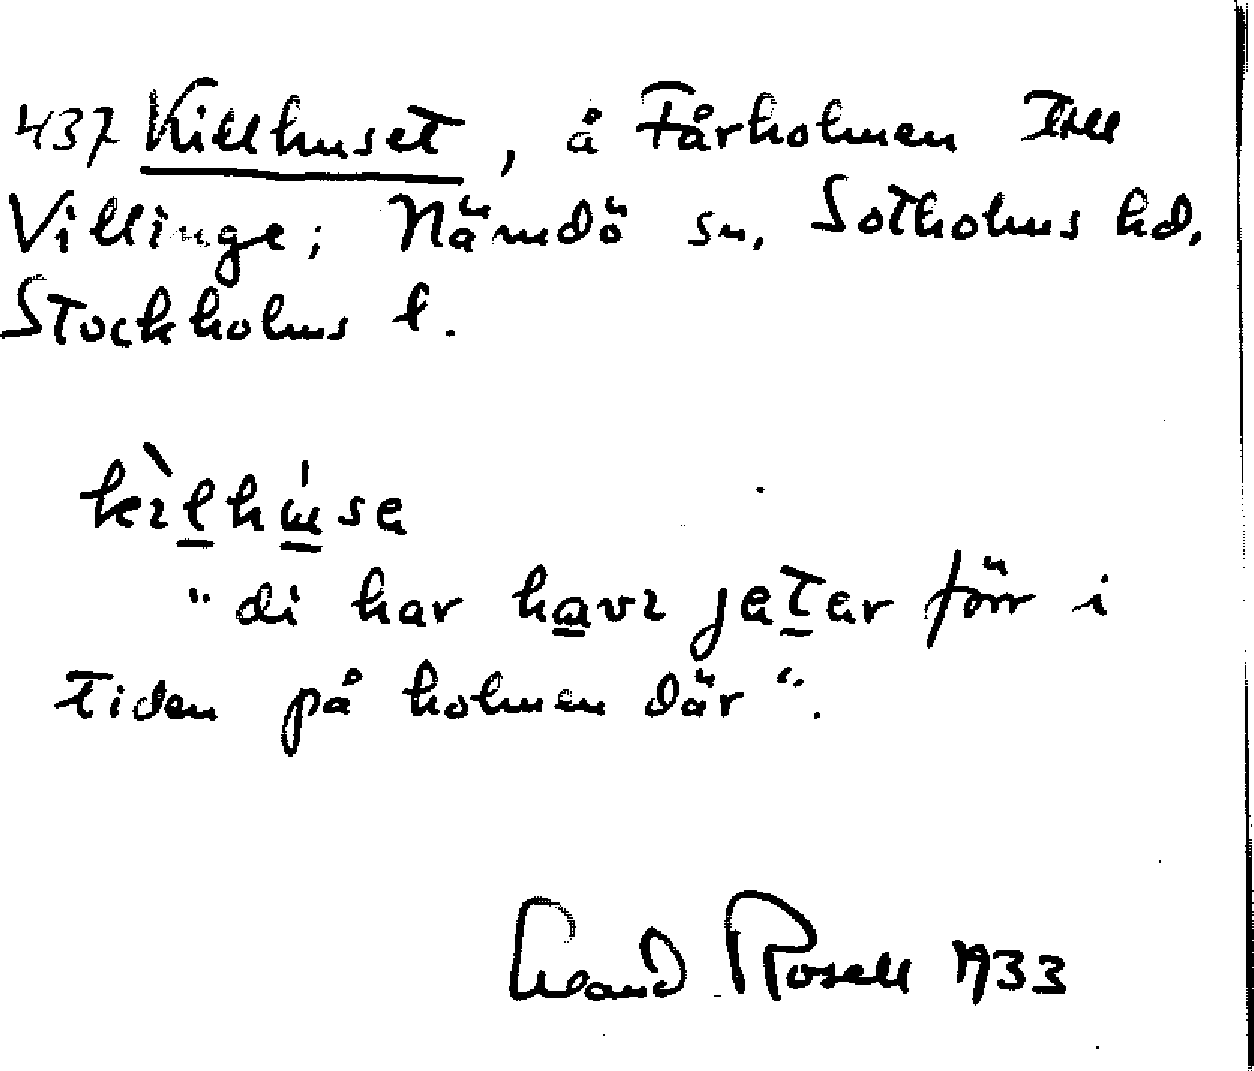 437 Killhuset, å Fårholmen till
Villinge; Nämdö sn, Sotholms hd,
Stockholms l.
kìlhúsa
"di har havı jetar förr i
tiden på holmen där".
Rosell 1933